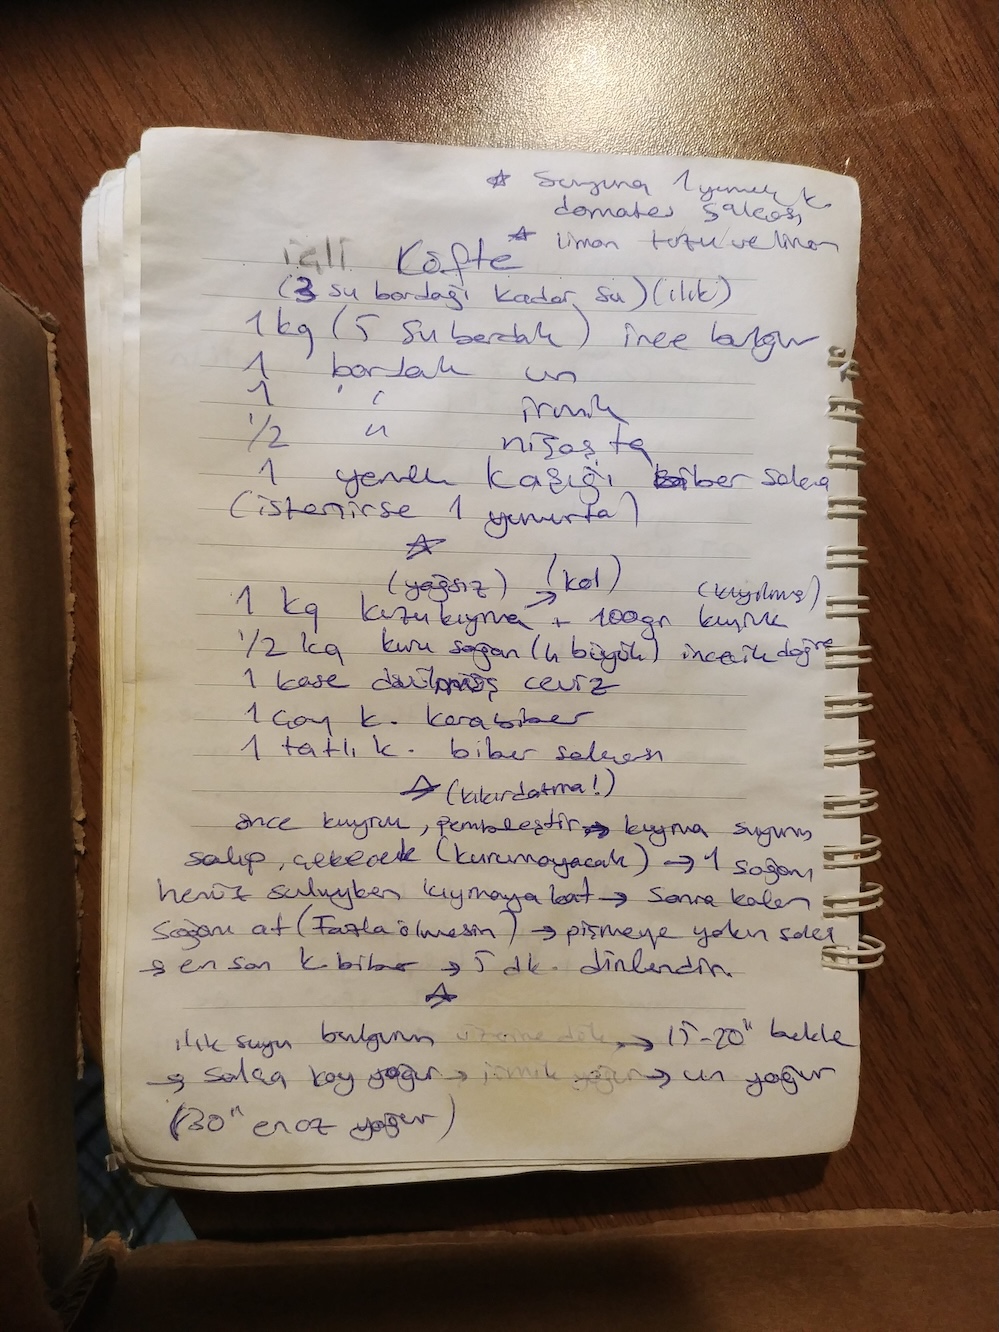 ☆ Suyuna 1 yemek k.
domates salçası
☆ limon tuzu ve limon
içli Köfte
(3 su bardağı kadar su) (ılık)
1 kg (5 su bardak) ince bulgur
1 bardak un
1 " irmik
1/2 " nişasta
1 yemek kaşığı biber salça
(istenirse 1 yumurta)
☆
(yağsız) (kol) (kıyılmış)
1 kg kuzu kıyma → + 100gr kuyruk
1/2 kg kuru soğan (4 büyük) incecik doğra
1 kase dövülmüş ceviz
1 çay k. karabiber
1 tatlı k. biber salçası
☆ (kıkırdatma!)
önce kuyruk, pembeleştir → kıyma suyunu
salıp, çekecek (kurumayacak) → 1 soğanı
henüz suluyken kıymaya kat → sonra kalan
soğanı at (fazla ölmesin) → pişmeye yakın salça
→ en son k.biber → 5 dk. dinlendir.
☆
ılık suyu bulgurun üzerine dök → 15-20" bekle
→ salça koy yoğur → irmik yoğur → un yoğur
(30" en az yoğur)